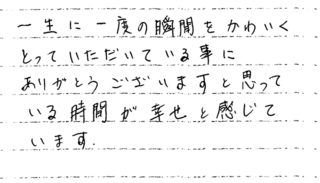 一生に一度の瞬間をかわいく
とっていただいている事に
ありがとうございますと思って
いる時間が幸せと感じて
います.